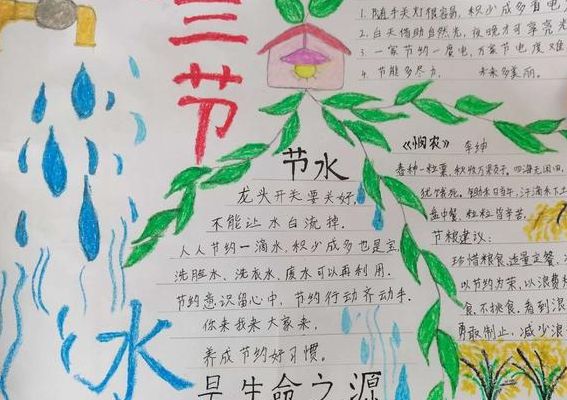 三节
1. 随手关灯很容易,积少成多省电
2. 白天借助自然光,夜晚才可享亮光
3. 一家节约一度电,万家节电度难
4. 节能多尽力, 未来多美丽。
节水
龙头开关要关好,
不能让水白流掉.
人人节约一滴水,积少成多也是宝
洗脸水、洗衣水,废水可以再利用.
节约意识留心中,节约行动齐动手.
你来我来大家来,
养成节约好习惯。
水
是生命之源
《悯农》 李绅
春种一粒粟,秋收万颗子。四海无闲田,
犹饿死。锄禾日当午,汗滴禾下土
盘中餐,粒粒皆辛苦。
节粮建议:
珍惜粮食,适量定餐,
以节约为荣,以浪费
食,不挑食,看到浪
勇敢制止,减少浪